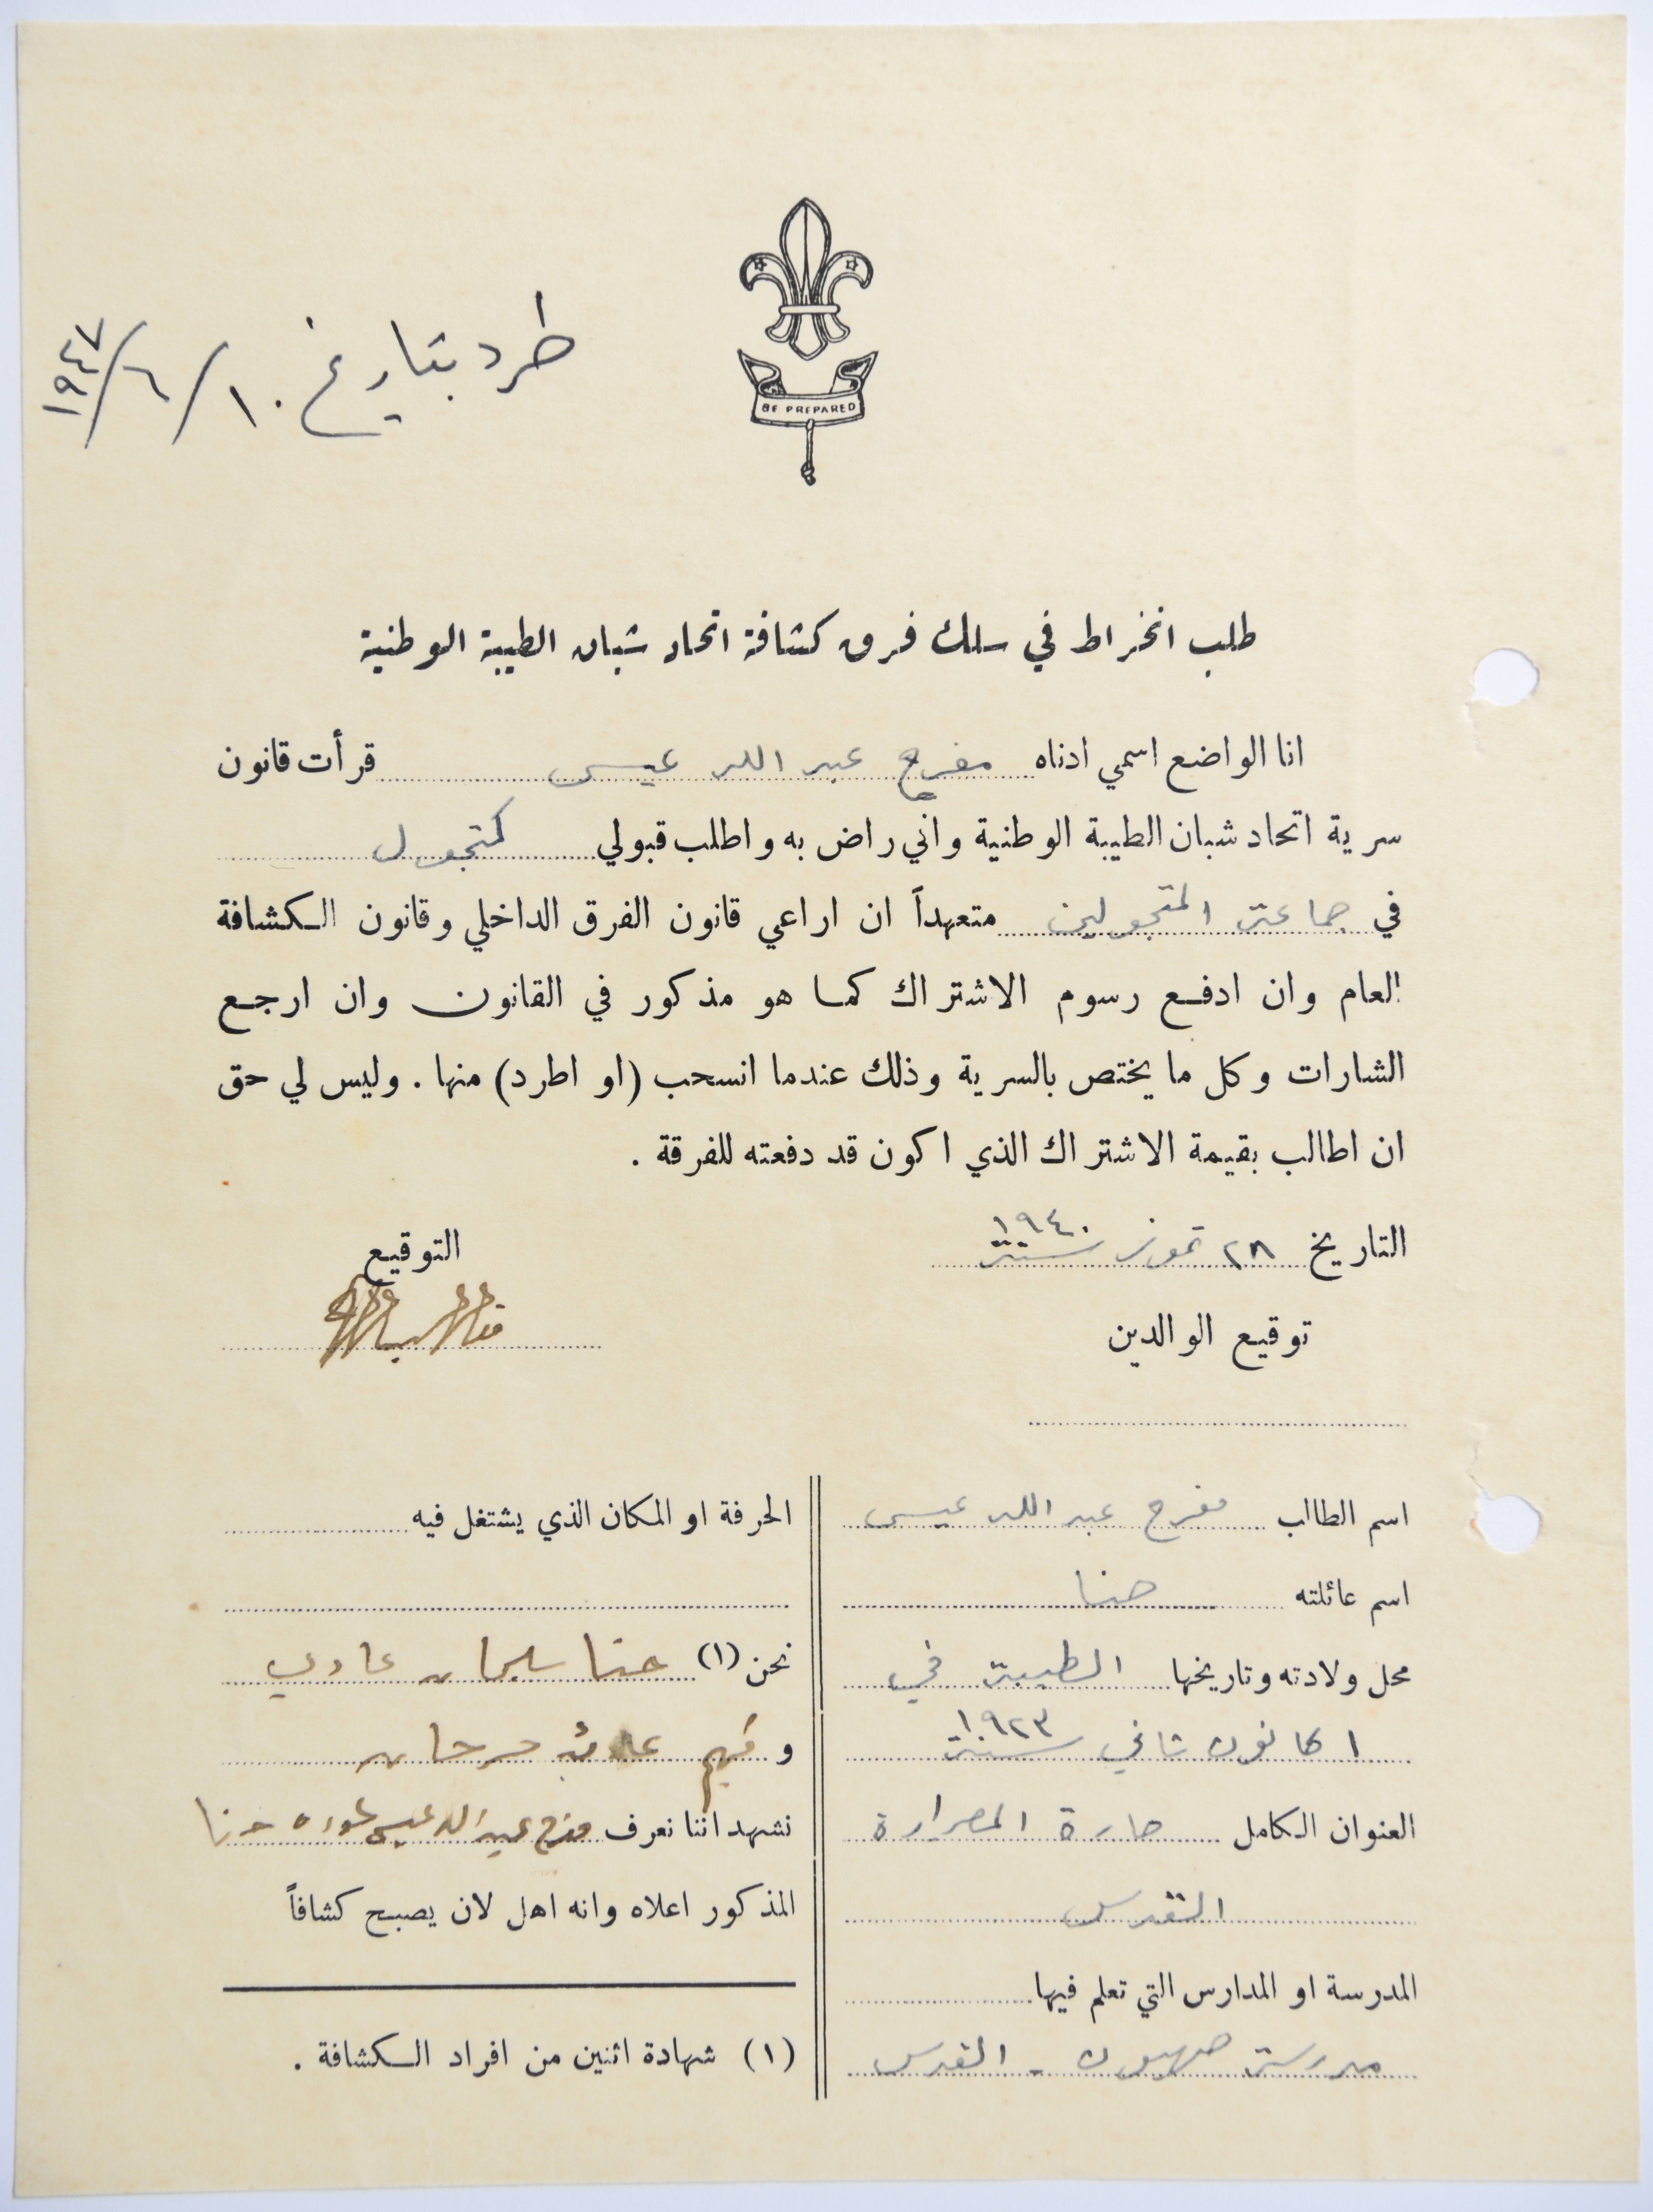 طرد بتاريخ ١٠/٦/١٩٤٧
BE PREPARED
طلب انخراط في سلك فرق كشافة اتحاد شبان الطيبة الوطنية
انا الواضع اسمي ادناه مفرح عبد الله عيسى قرأت قانون
سرية اتحاد شبان الطيبة الوطنية واني راض به واطلب قبولي كمتجول
في جماعة المتجولين متعهداً ان اراعي قانون الفرق الداخلي وقانون الكشافة
العام وان ادفع رسوم الاشتراك كما هو مذكور في القانون وان ارجع
الشارات وكل ما يختص بالسرية وذلك عندما انسحب (او اطرد) منها . وليس لي حق
ان اطالب بقيمة الاشتراك الذي اكون قد دفعته للفرقة .
التاريخ ٢٨ تموز سنة ١٩٤٠
التوقيع
توقيع الوالدين
اسم الطالب مفرح عبد الله عيسى
اسم عائلته حنا
محل ولادته وتاريخها الطيبة في
١ كانون ثاني سنة ١٩٢٣
العنوان الكامل حارة المصرارة
القدس
المدرسة او المدارس التي تعلم فيها
مدرسة صهيون - القدس
الحرفة او المكان الذي يشتغل فيه
نحن (١) حنا سليمان عادي
و
نشهد اننا نعرف مفرح عبد الله عيسى حنا
المذكور اعلاه وانه اهل لان يصبح كشافاً
(١) شهادة اثنين من افراد الكشافة .